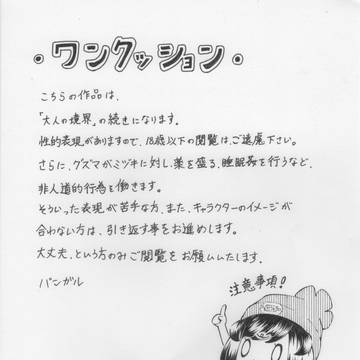 ・ワンクッション・
こちらの作品は、
「大人の境界」の続きになります。
性的表現がありますので、18歳以下の閲覧は、ご遠慮下さい。
さらに、グズマがミヅキに対し、薬を盛る、睡眠姦を行うなど、
非人道的行為を働きます。
そういった表現が苦手な方、また、キャラクターのイメージが
合わない方は、引き返す事をお進めします。
大丈夫、という方のみご閲覧をお願いいたします。
バンガル
注意事項!